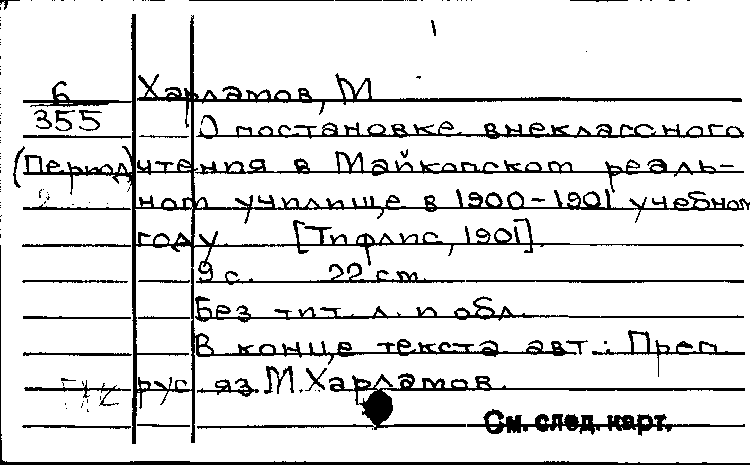 1
6 Харламов, М
355 О постановке внеклассного
(Период) чтения в Майкопском реаль-
ном училище в 1900-1901 учебном
году. [Тифлис, 1901].
9 с. 22 см.
Без тит. л. и обл.
В конце текста авт.: Преп.
рус. яз. М. Харламов.
См. след. карт.